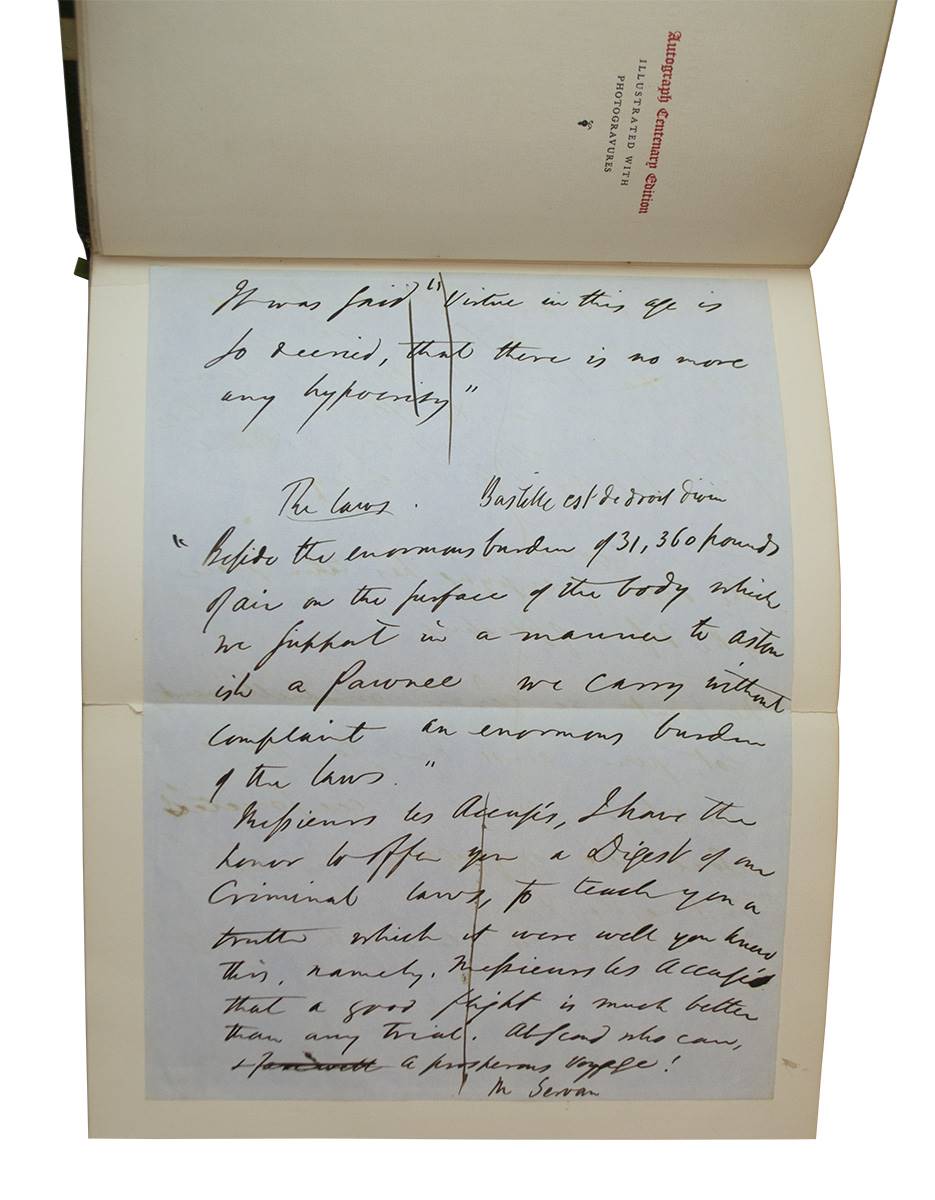 Autograph Centenary Edition
ILLUSTRATED WITH
PHOTOGRAVURES
It was said "Virtue in this age is
so decried, that there is no more
any hypocrisy"
The laws. Bastille est de droit divin
"Beside the enormous burden of 31,360 pounds
of air on the surface of the body which
we support in a manner to aston
ish a Pawnee we carry without
complaint an enormous burden
of the laws."
Messieurs les Accusés, I have the
honor to offer you a Digest of our
Criminal laws, to teach you a
truth which it were well you knew
this, namely, Messieurs les Accusés
that a good flight is much better
than any trial. Abscond who can,
& farewell a prosperous voyage!
M Servan